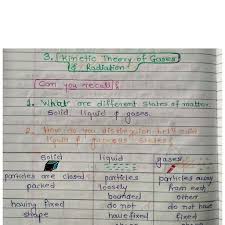 3. Kinetic Theory of Gases
& Radiation
Can you recall?
1. What are different states of matter
Solid liquid & gases.
2. How do you distinguish betn solid
liquid & gaseous states?
solid liquid gases
particles are closed particles particles away
packed loosely from each
bounded other
having fixed do not do not have
shape have fixed fixed